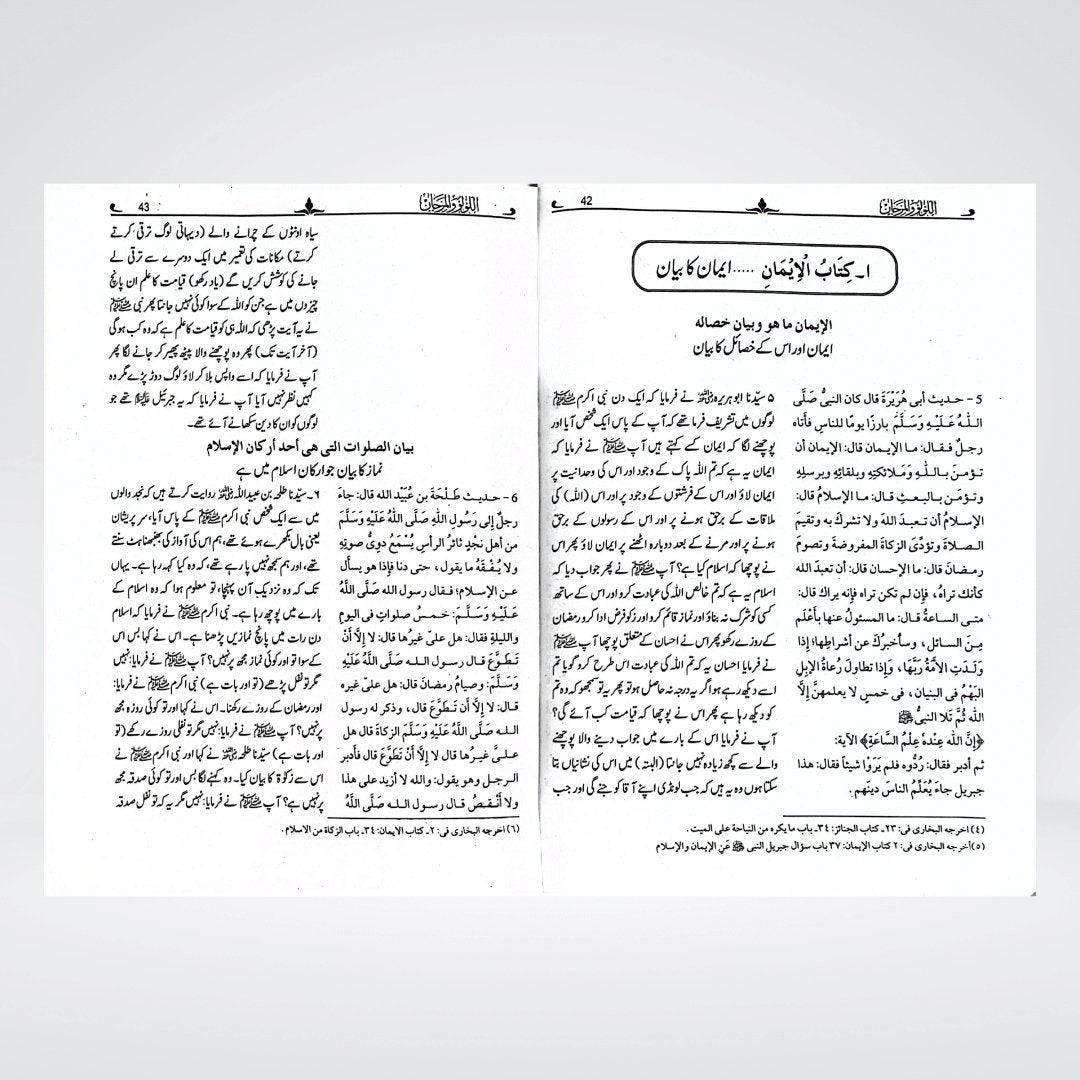 اللؤلؤ والمرجان
42
۱۔ كِتَابُ الْإِيْمَانِ ..... ایمان کا بیان
الإيمان ما هو وبيان خصاله
ایمان اور اس کے خصائل کا بیان
5- حديث أبى هُرَيْرَةَ قال كان النبىُّ صَلَّى
اللّٰهُ عَلَيْهِ وَسَلَّمَ بارزًا يومًا للناسِ فأتاه
رجلٌ فقال: ما الإيمان قال: الإيمان أن
تؤمنَ باللّٰهِ وَمَلائكتِه وبلقائِه وبرسلِه
وتؤمنَ بالبعثِ قال: ما الإسلامُ قال:
الإسلامُ أن تعبدَ اللهَ ولا تشركَ به وتقيمَ
الصلاةَ وتؤدِّىَ الزكاةَ المفروضةَ وتصومَ
رمضانَ قال: ما الإحسان قال: أن تعبدَ الله
كأنك تراهُ، فإن لم تكن تراه فإنه يراك قال:
متى الساعةُ قال: ما المسئولُ عنها بأَعْلَمَ
مِنَ السائلِ، وسأخبركَ عن أشراطِها؛ إذا
ولَدَتِ الأمَةُ ربَّها، وإذا تطاولَ رُعاةُ الإبلِ
البَهْمُ فى البنيان، فى خمسٍ لا يعلمهنَّ إلَّا
الله ثُمَّ تَلا النبىُّ ﷺ
﴿إِنَّ اللهَ عِنْدَهُ عِلْمُ السَّاعَةِ﴾ الآية:
ثم أدبر فقال: رُدُّوه فلم يَرَوْا شيئاً فقال: هذا
جبريل جاءَ يُعَلِّمُ الناسَ دينَهم.
۵ سیّدنا ابو ہریرہ رضی اللہ عنہ نے فرمایا کہ ایک دن نبی اکرم ﷺ
لوگوں میں تشریف فرما تھے کہ آپ کے پاس ایک شخص آیا اور
پوچھنے لگا کہ ایمان کسے کہتے ہیں آپ ﷺ نے فرمایا کہ
ایمان یہ ہے کہ تم اللہ پاک کے وجود اور اس کی وحدانیت پر
ایمان لاؤ اور اس کے فرشتوں کے وجود پر اور اس (اللہ) کی
ملاقات کے برحق ہونے پر اور اس کے رسولوں کے برحق
ہونے پر اور مرنے کے بعد دوبارہ اٹھنے پر ایمان لاؤ پھر اس
نے پوچھا کہ اسلام کیا ہے؟ آپ ﷺ نے پھر جواب دیا کہ
اسلام یہ ہے کہ تم خالص اللہ کی عبادت کرو اور اس کے ساتھ
کسی کو شریک نہ بناؤ اور نماز قائم کرو اور زکوٰۃ فرض ادا کرو اور رمضان
کے روزے رکھو پھر اس نے احسان کے متعلق پوچھا آپ ﷺ
نے فرمایا احسان یہ کہ تم اللہ کی عبادت اس طرح کرو گویا تم
اسے دیکھ رہے ہو اگر یہ درجہ نہ حاصل ہو تو پھر یہ تو سمجھو کہ وہ تم
کو دیکھ رہا ہے پھر اس نے پوچھا کہ قیامت کب آئے گی؟
آپ نے فرمایا کہ اس کے بارے میں جواب دینے والا پوچھنے
والے سے کچھ زیادہ نہیں جانتا (البتہ) میں اس کی نشانیاں بتا
سکتا ہوں وہ یہ ہیں کہ جب لونڈی اپنے آقا کو جنے گی اور جب
(٤) اخرجه البخارى فى: ٢٣۔ كتاب الجنائز: ٣٤۔ باب ما يكره من النياحة على الميت.
(٥) أخرجه البخارى فى: ٢ كتاب الإيمان: ٣٧ باب سؤال جبريل النبى ﷺ عَنِ الإيمان والإسلام
اللؤلؤ والمرجان
43
سیاہ اونٹوں کے چرانے والے (دیہاتی لوگ ترقی کرتے
کرتے) مکانات کی تعمیر میں ایک دوسرے سے ترقی لے
جانے کی کوشش کریں گے (یاد رکھو) قیامت کا علم ان پانچ
چیزوں میں ہے جن کو اللہ کے سوا کوئی نہیں جانتا پھر نبی ﷺ
نے یہ آیت پڑھی کہ اللہ ہی کو قیامت کا علم ہے کہ وہ کب ہوگی
(آخر آیت تک) پھر وہ پوچھنے والا پیٹھ پھیر کر جانے لگا پھر
آپ نے فرمایا کہ اسے واپس بلا کر لاؤ لوگ دوڑ پڑے مگر وہ
کہیں نظر نہیں آیا آپ نے فرمایا کہ یہ جبرئیل علیہ السلام تھے جو
لوگوں کو ان کا دین سکھانے آئے تھے۔
بيان الصلوات التى هى أحد أركان الإسلام
نماز کا بیان جو ارکان اسلام میں ہے
6- حديث طَلْحَةَ بن عُبَيْدِ الله قال: جاءَ
رجلٌ إلى رَسُولِ اللّٰهِ صَلَّى اللّٰهُ عَلَيْهِ وَسَلَّمَ
من أهل نجْدٍ ثائرُ الرأسِ يُسْمَعُ دوىُّ صوتِهِ
ولا يُفْقَهُ ما يقول، حتى دنا فإذا هو يسأَل
عن الإسلامِ؛ فقال رسول الله صَلَّى اللّٰهُ
عَلَيْهِ وَسَلَّمَ: خمسُ صلواتٍ فى اليومِ
والليلةِ فقال: هل علىّ غيرُها قال: لا إلَّا أَنْ
تَطَوَّعَ قال رسول الله صَلَّى اللّٰهُ عَلَيْهِ
وَسَلَّمَ: وصيامُ رمضانَ قال: هل علىّ غيره
قال: لا إلَّا أن تَطَوَّعَ قال، وذكر له رسول
الله صَلَّى اللّٰهُ عَلَيْهِ وَسَلَّمَ الزكاةَ قال هل
علىَّ غيرُها قال لا إلَّا أنْ تَطَوَّعَ قال فأدبر
الرجل وهو يقول: والله لا أزيد على هذا
ولا أَنْقصُ قال رسول الله صَلَّى اللّٰهُ
۶۔ سیّدنا طلحہ بن عبید اللہ رضی اللہ عنہ روایت کرتے ہیں کہ نجد والوں
میں سے ایک شخص نبی اکرم ﷺ کے پاس آیا، سر پریشان
یعنی بال بکھرے ہوئے تھے، ہم اس کی آواز کی بھنبھناہٹ سنتے
تھے، اور ہم سمجھ نہیں پا رہے تھے، کہ وہ کیا کہہ رہا ہے۔ یہاں
تک کہ وہ نزدیک آن پہنچا، تو معلوم ہوا کہ وہ اسلام کے
بارے میں پوچھ رہا ہے۔ نبی اکرم ﷺ نے فرمایا کہ اسلام
دن رات میں پانچ نمازیں پڑھنا ہے۔ اس نے کہا بس اس
کے سوا تو اور کوئی نماز مجھ پر نہیں؟ آپ ﷺ نے فرمایا: نہیں
مگر تو نفل پڑھے (تو اور بات ہے) نبی اکرم ﷺ نے فرمایا:
اور رمضان کے روزے رکھنا۔ اس نے کہا اور تو کوئی روزہ مجھ
پر نہیں؟ آپ ﷺ نے فرمایا: نہیں مگر تو نفلی روزے رکھے (تو
اور بات ہے) سیّدنا طلحہ رضی اللہ عنہ نے کہا اور نبی اکرم ﷺ نے
اس سے زکوٰۃ کا بیان کیا۔ وہ کہنے لگا بس اور تو کوئی صدقہ مجھ
پر نہیں ہے؟ آپ ﷺ نے فرمایا: نہیں مگر یہ کہ تو نفل صدقہ
(٦) اخرجه البخارى فى: ٢۔ كتاب الايمان: ٣٤۔ باب الزكاة من الاسلام.